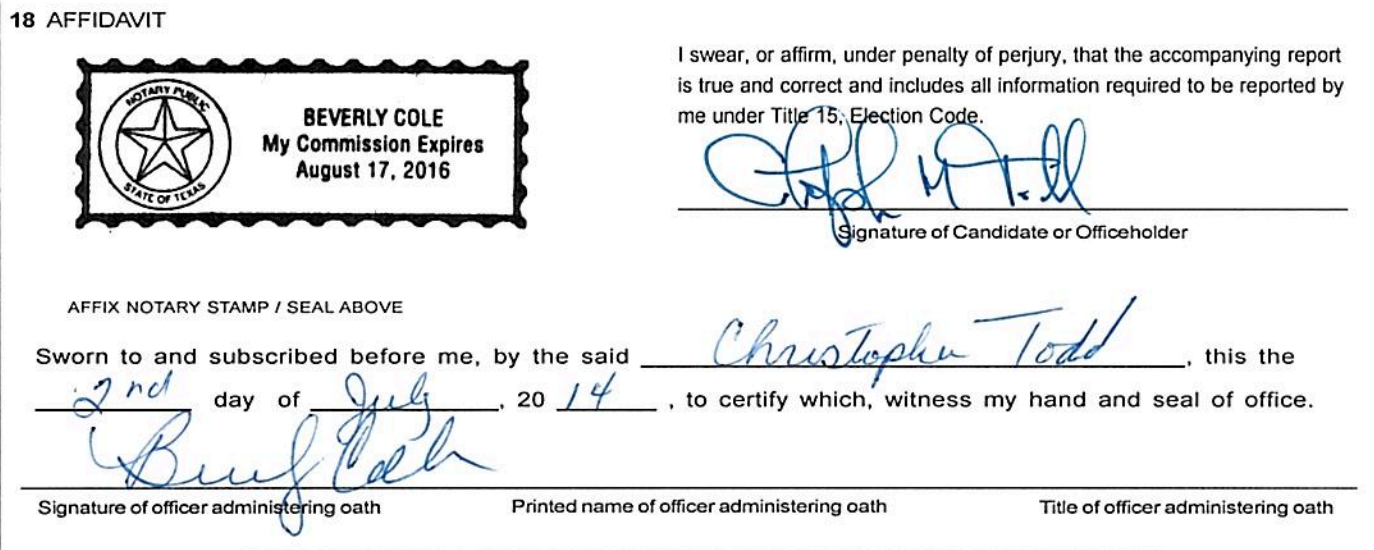 18 AFFIDAVIT
NOTARY PUBLIC
STATE OF TEXAS
BEVERLY COLE
My Commission Expires
August 17, 2016
I swear, or affirm, under penalty of perjury, that the accompanying report
is true and correct and includes all information required to be reported by
me under Title 15, Election Code.
Signature of Candidate or Officeholder
AFFIX NOTARY STAMP / SEAL ABOVE
Sworn to and subscribed before me, by the said Christopher Todd, this the
2nd day of July, 20 14, to certify which, witness my hand and seal of office.
Signature of officer administering oath Printed name of officer administering oath Title of officer administering oath